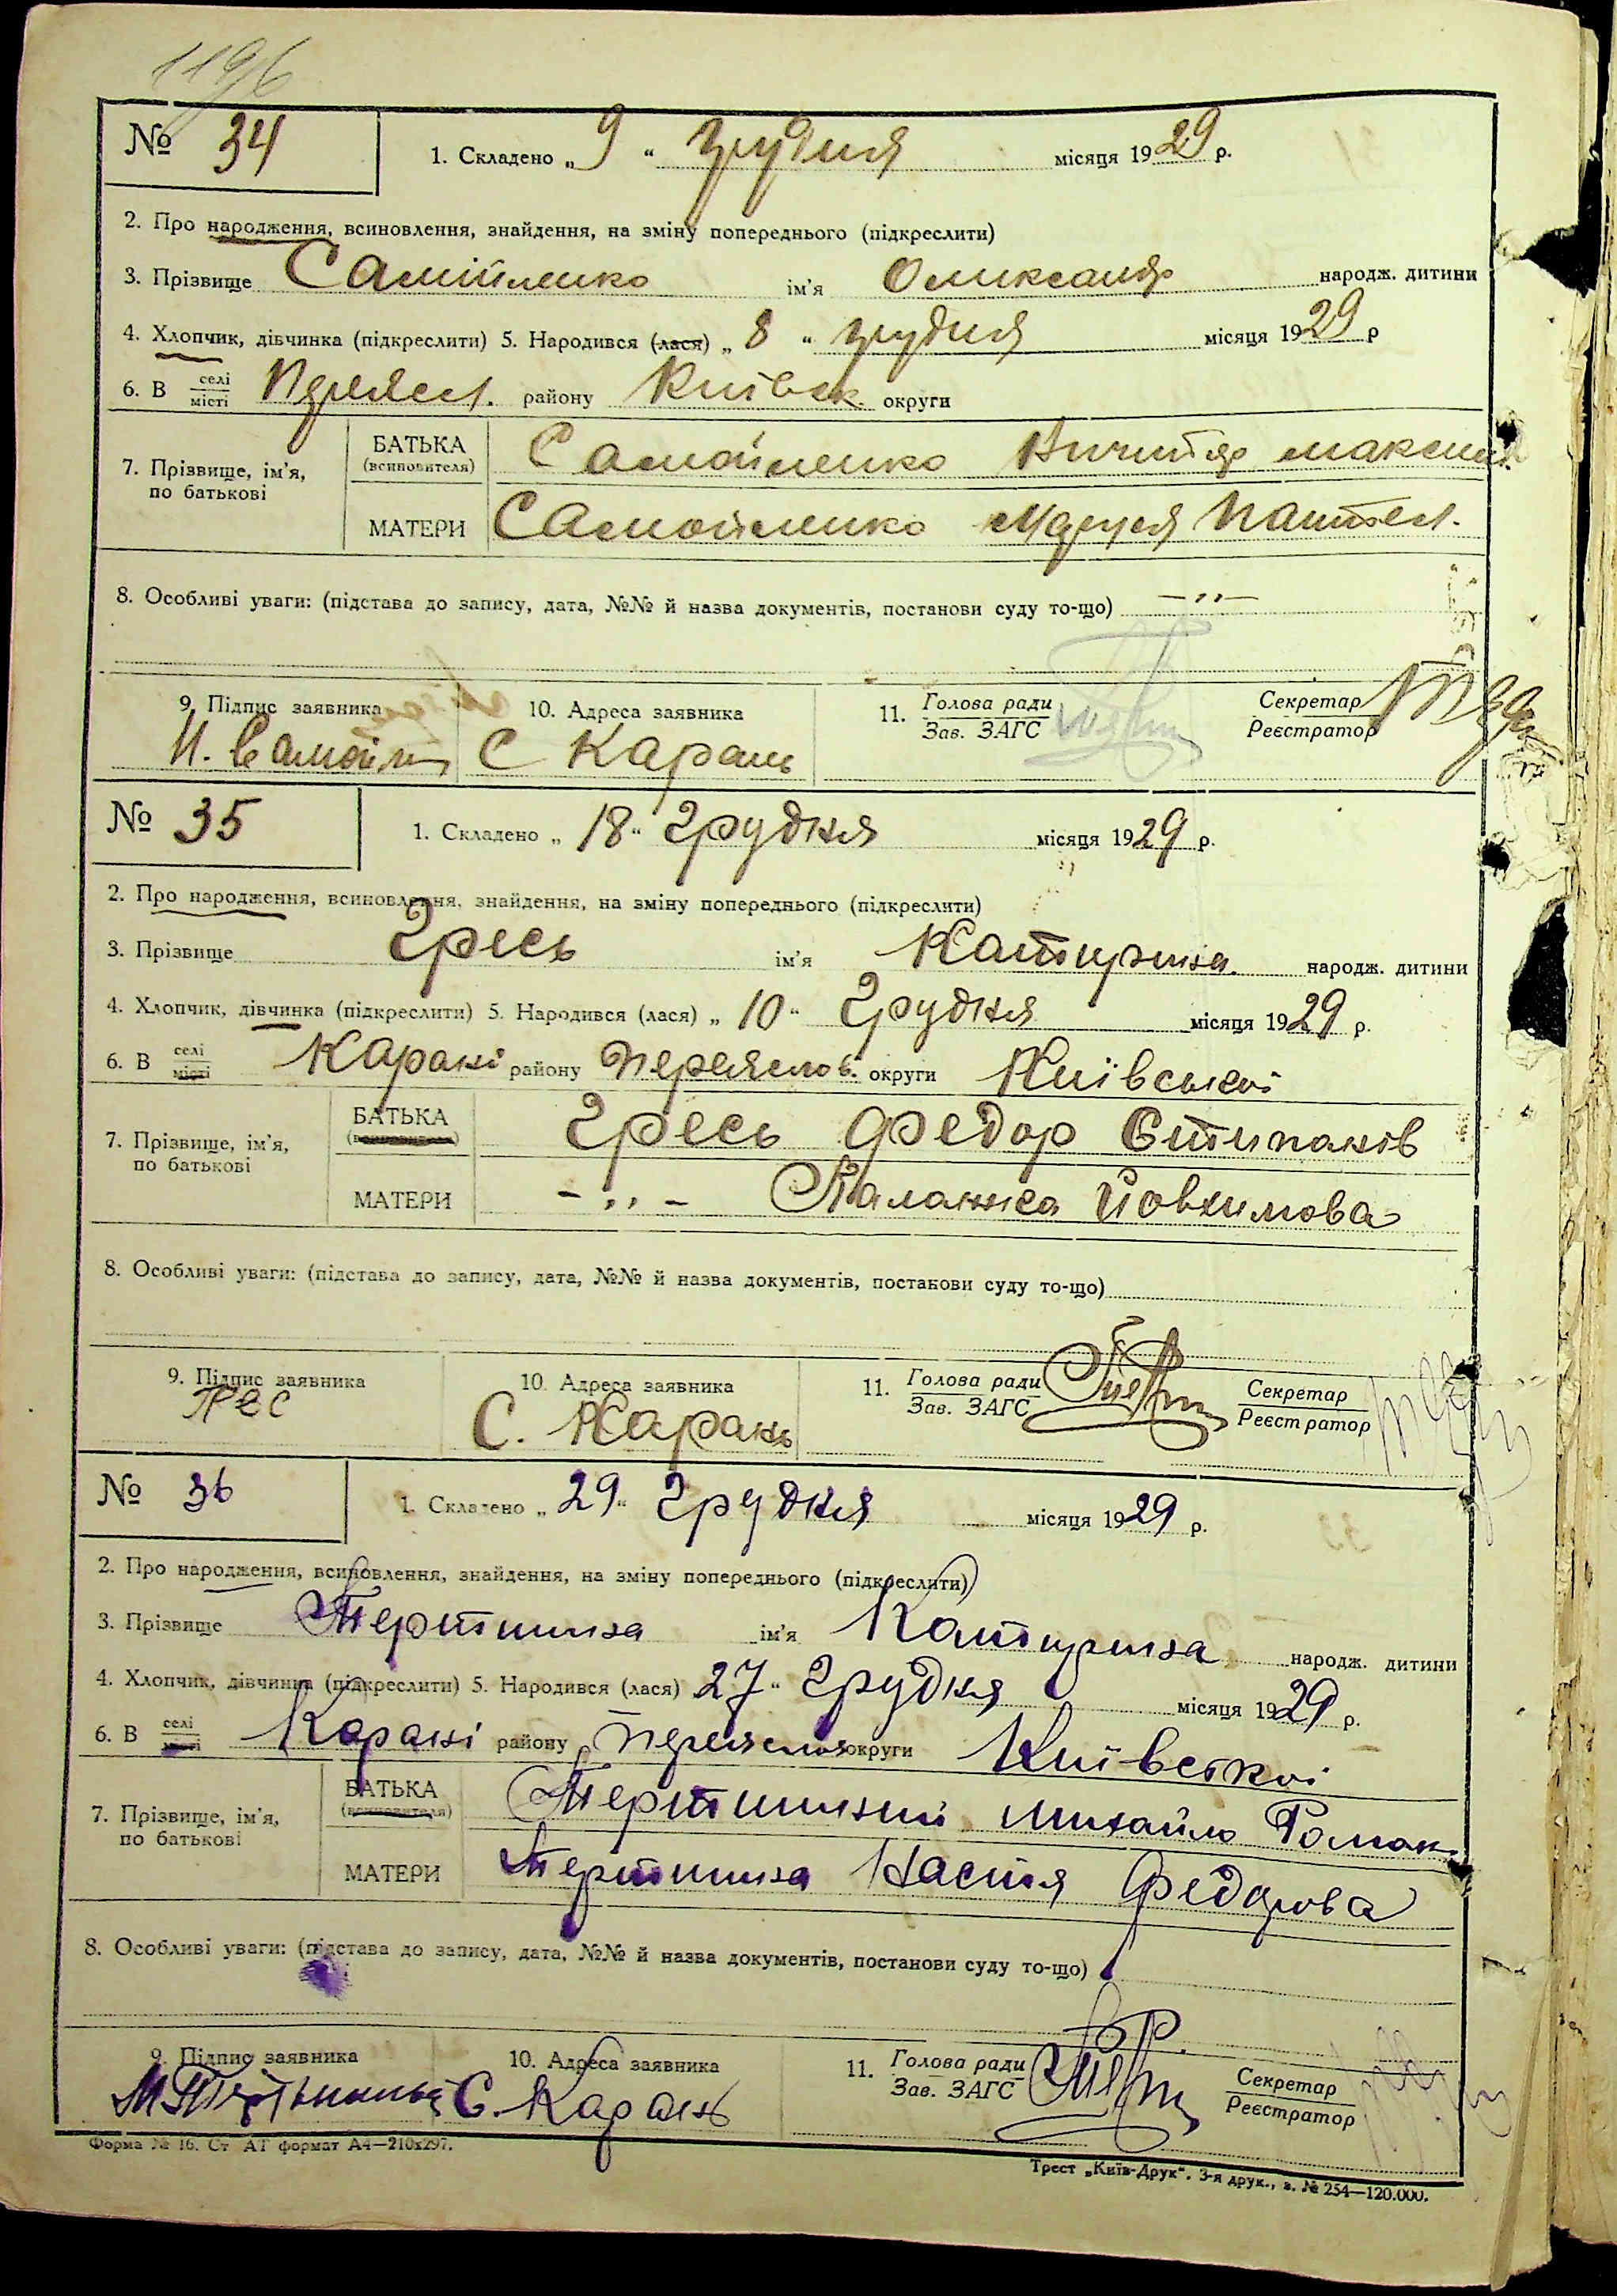 119/6
№ 34 1. Складено „ 9 “ грудня місяця 1929 р.
2. Про народження, всиновлення, знайдення, на зміну попереднього (підкреслити)
3. Прізвище Самійленко ім'я Олександр народж. дитини
4. Хлопчик, дівчинка (підкреслити) 5. Народився (лася) „ 8 “ грудня місяця 1929 р
6. В селі місті Переясл. району Київськ округи
7. Прізвище, ім'я, по батькові
БАТЬКА (всиновителя) Самойленко максим
МАТЕРИ Самойленко Маруся Пантел.
8. Особливі уваги: (підстава до запису, дата, №№ й назва документів, постанови суду то-що) —„—
9. Підпис заявника 10. Адреса заявника 11. Голова ради Зав. ЗАГС Секретар Реєстратор
С Карань
№ 35 1. Складено „ 18 “ Грудня місяця 1929 р.
2. Про народження, всиновлення, знайдення, на зміну попереднього (підкреслити)
3. Прізвище Гресь ім'я Катирина народж. дитини
4. Хлопчик, дівчинка (підкреслити) 5. Народився (лася) „ 10 “ Грудня місяця 1929 р.
6. В селі місті Карані району Переяслов. округи Київської
7. Прізвище, ім'я, по батькові
БАТЬКА (всиновителя) Гресь Федор Стипанів
МАТЕРИ —„— Палажка Йовхимова
8. Особливі уваги: (підстава до запису, дата, №№ й назва документів, постанови суду то-що)
9. Підпис заявника 10. Адреса заявника 11. Голова ради Зав. ЗАГС Секретар Реєстратор
Грес С. Карань
№ 36 1. Складено „ 29 “ Грудня місяця 1929 р.
2. Про народження, всиновлення, знайдення, на зміну попереднього (підкреслити)
3. Прізвище Тертишна ім'я Катирина народж. дитини
4. Хлопчик, дівчинка (підкреслити) 5. Народився (лася) 27 “ Грудня місяця 1929 р.
6. В селі місті Карані району Переяслов округи Київської
7. Прізвище, ім'я, по батькові
БАТЬКА (всиновителя) Тертишний Михайло Роман.
МАТЕРИ Тертишна Настя Федорова
8. Особливі уваги: (підстава до запису, дата, №№ й назва документів, постанови суду то-що)
9. Підпис заявника 10. Адреса заявника 11. Голова ради Зав. ЗАГС Секретар Реєстратор
С. Карань
Форма № 16. Ст АТ формат А4—210x297.
Трест „Київ-Друк“. 3-я друк., з. № 254—120.000.